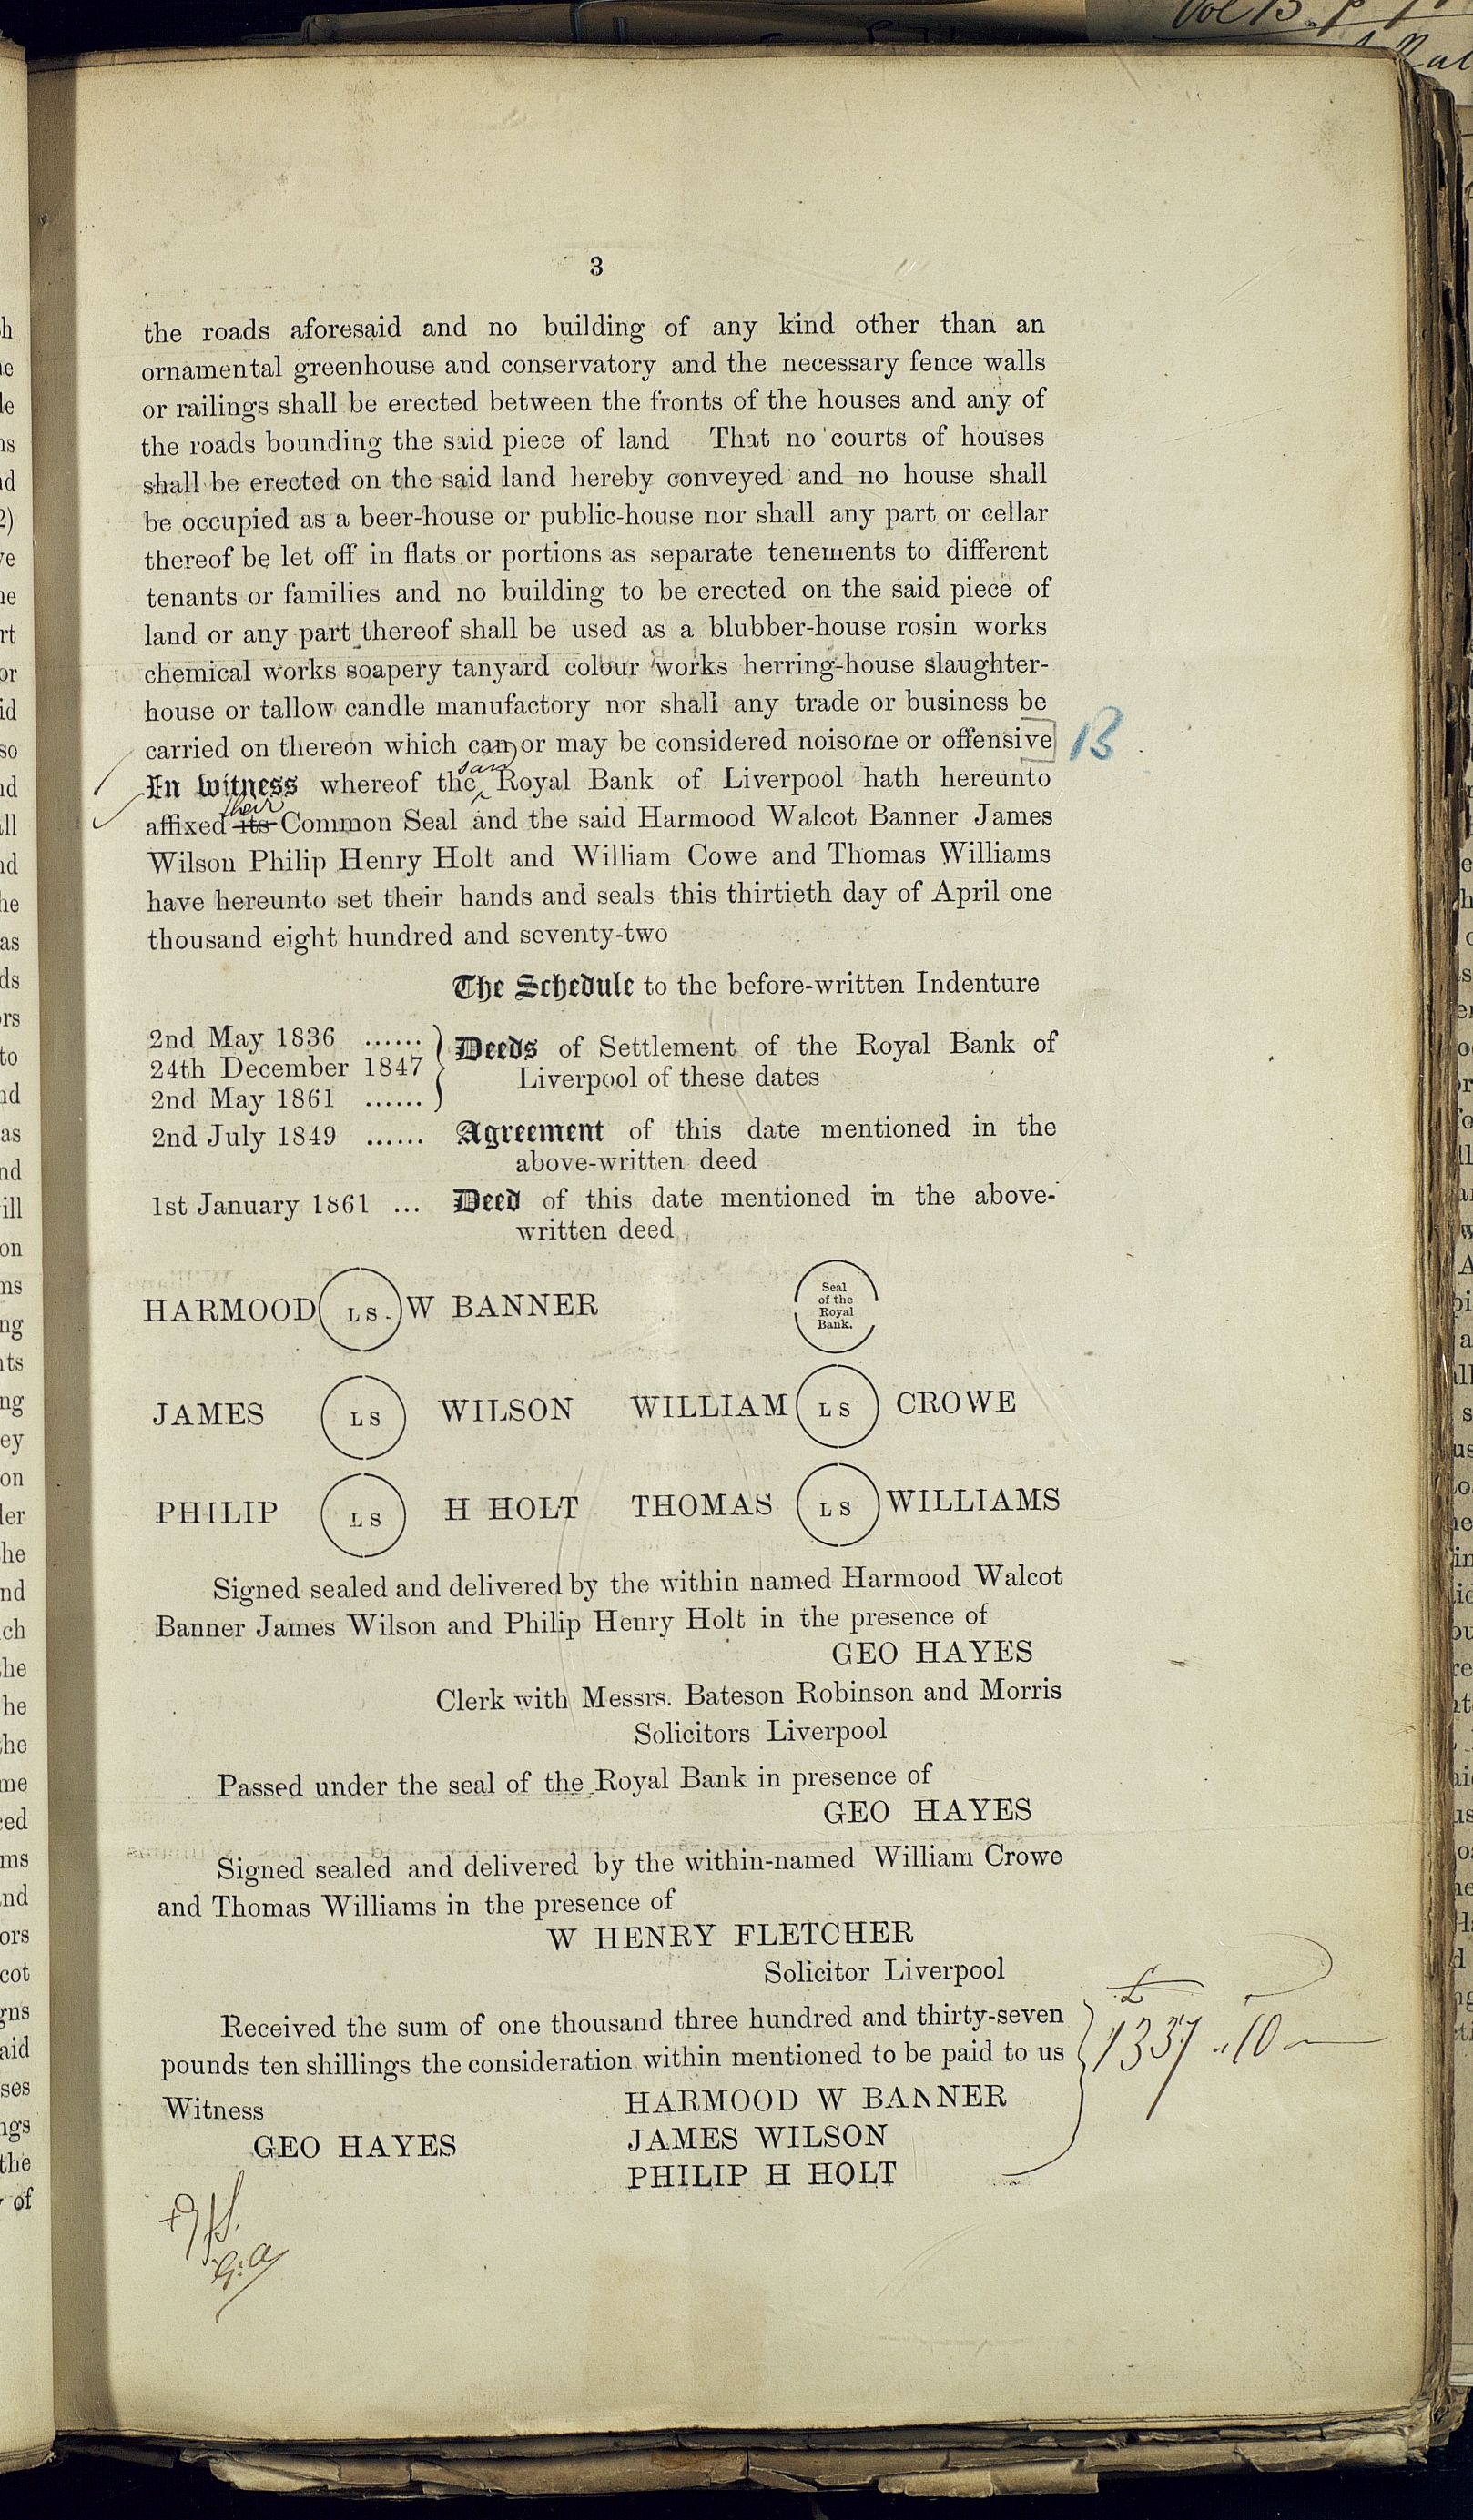 3
the roads aforesaid and no building of any kind other than an
ornamental greenhouse and conservatory and the necessary fence walls
or railings shall be erected between the fronts of the houses and any of
the roads bounding the said piece of land That no courts of houses
shall be erected on the said land hereby conveyed and no house shall
be occupied as a beer-house or public-house nor shall any part or cellar
thereof be let off in flats or portions as separate tenements to different
tenants or families and no building to be erected on the said piece of
land or any part thereof shall be used as a blubber-house rosin works
chemical works soapery tanyard colour works herring-house slaughter-
house or tallow candle manufactory nor shall any trade or business be
carried on thereon which can or may be considered noisome or offensive] B
In witness whereof the said Royal Bank of Liverpool hath hereunto
affixed its their Common Seal and the said Harmood Walcot Banner James
Wilson Philip Henry Holt and William Cowe and Thomas Williams
have hereunto set their hands and seals this thirtieth day of April one
thousand eight hundred and seventy-two
The Schedule to the before-written Indenture
2nd May 1836 ......
24th December 1847
2nd May 1861 ......
Deeds of Settlement of the Royal Bank of
Liverpool of these dates
2nd July 1849 ...... Agreement of this date mentioned in the
above-written deed
1st January 1861 ... Deed of this date mentioned in the above-
written deed
HARMOOD L S. W BANNER
Seal
of the
Royal
Bank.
JAMES L S WILSON WILLIAM L S CROWE
PHILIP L S H HOLT THOMAS L S WILLIAMS
Signed sealed and delivered by the within named Harmood Walcot
Banner James Wilson and Philip Henry Holt in the presence of
GEO HAYES
Clerk with Messrs. Bateson Robinson and Morris
Solicitors Liverpool
Passed under the seal of the Royal Bank in presence of
GEO HAYES
Signed sealed and delivered by the within-named William Crowe
and Thomas Williams in the presence of
W HENRY FLETCHER
Solicitor Liverpool
Received the sum of one thousand three hundred and thirty-seven
pounds ten shillings the consideration within mentioned to be paid to us
£
1337 " 10 —
Witness HARMOOD W BANNER
GEO HAYES JAMES WILSON
PHILIP H HOLT